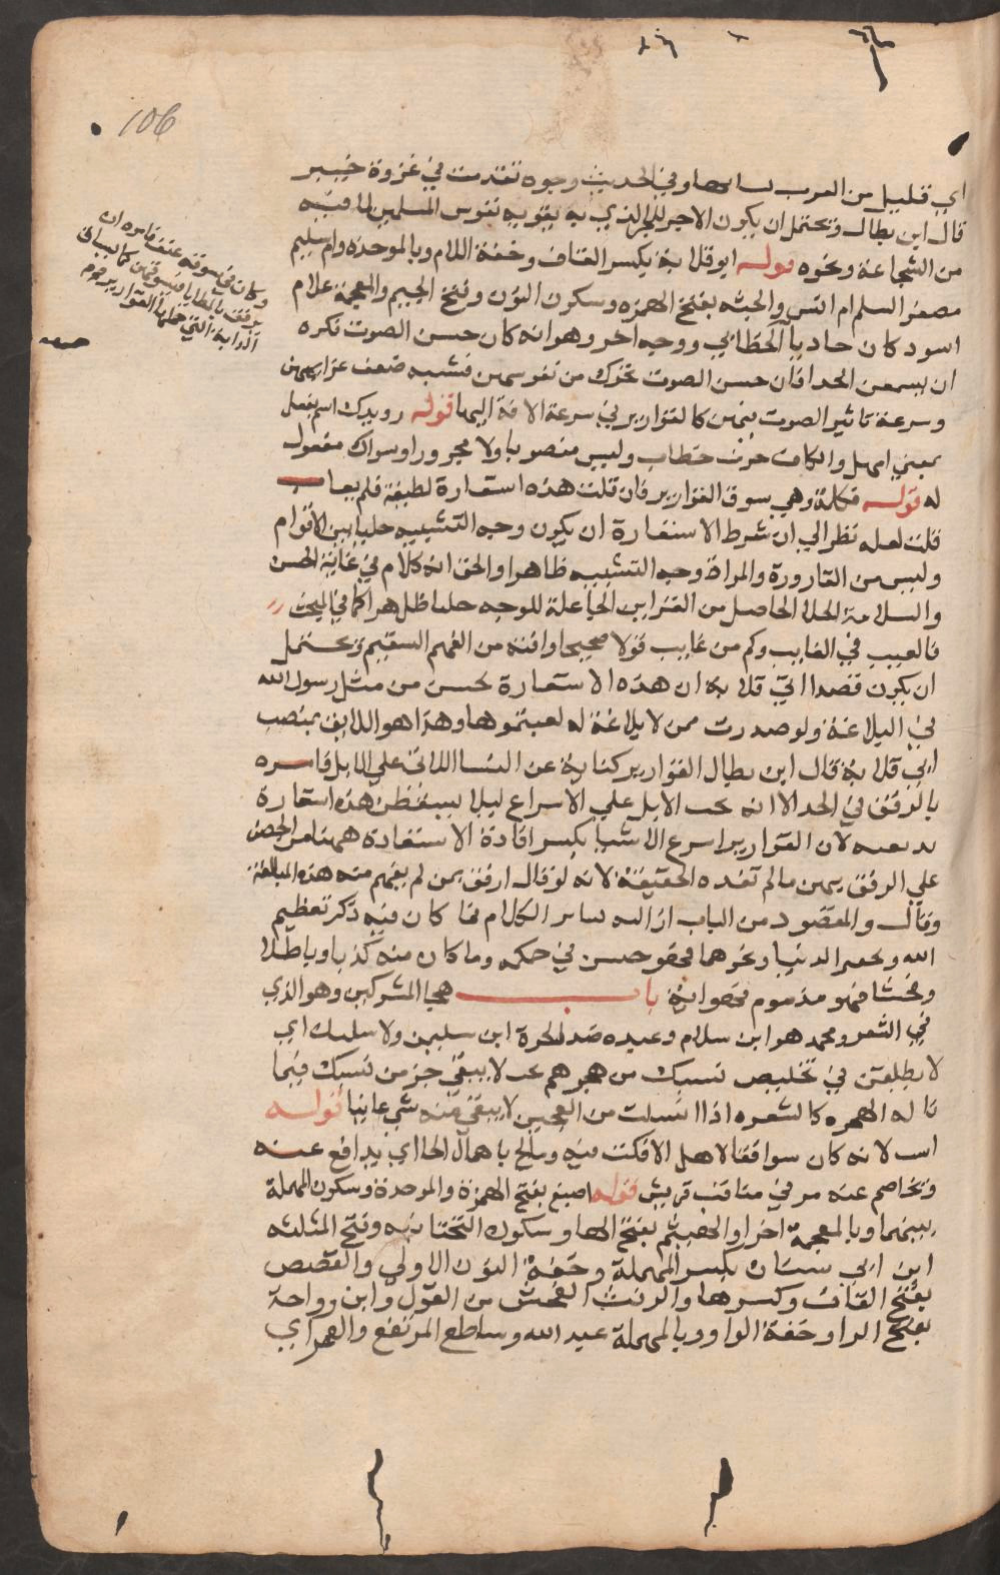 106
اي قليل من العرب نشا بها وفي الحديث وجوه تقدمت في غزوة خيبر
قال ابن بطال وتحتمل ان يكون الاجر الذي به يقويه نفوس المسلمين لما فيه
من الشجاعة ونحوه قوله ابو قلابة بكسر القاف وخفة اللام وبالموحدة وام سليم
مصغر السلم ام انس وانجشه بفتح الهمزه وسكون النون وفتح الجيم والمعجمة غلام
اسود كان حاديا الخطابي ووجه اخر وهو انه كان حسن الصوت فكره
ان يسمعن الحدا فان حسن الصوت يحرك من نفوسهن فشبه ضعف عزايمهن
وسرعة تاثير الصوت فيهن كالقوارير في سرعة الافة اليها قوله رويدك اسم فعل
بمعني امهل والكاف حرف خطاب وليس منصوبا ولا مجرورا وسواك مفعول
له قوله فكلمة وهي سوق القوارير فان قلت هذه استعارة لطيفة فلم يعاب
قلت لعله نظر الي ان شرط الاستعارة ان يكون وجه التشبيه جليا بين الاقوام
وليس من القارورة والمراة وجه التشبيه ظاهرا والحق انه كلام في غاية الحسن
والسلامة الجلا الحاصل من القراين الجاعلة للوجه جليا ظاهرا كما في المبحث
فالعيب في العايب وكم من عايب قولا صحيحا وافته من الفهم السقيم ويحتمل
ان يكون قصد ابي قلابة ان هذه الاستعارة تحسن من مثل رسول الله
في البلاغة ولو صدرت ممن لا بلاغة له لعبتموها وهذا هو اللايق بمنصب
ابي قلابة قال ابن بطال القوارير كناية عن النسا اللاتي علي الابل فامره
بالرفق في الحدا لانه يحث الابل علي الاسراع ليلا يسقطن هذه استعارة
بديعه لان القوارير اسرع الاشيا بكسر افادة الاستعارة ههنا من الحض
علي الرفق بهن ما لم تفده الحقيقة لانه لو قال ارفق بهن لم يفهم منه هذه المبالغة
وقال والمقصود من الباب ان الشعر كساير الكلام فما كان فيه ذكر تعظيم
الله وتحقير الدنيا ونحوهما فهو حسن في حكمه وما كان منه كذبا وباطلا
وفحشا فهو مذموم فهو غواية باب هجا المشركين وهو الذي
في الشعر ومحمد هو ابن سلام وعبده ضد الحرة ابن سليمن ولاسلنك اي
لا تلطفن في تخليص نسبك من هجوهم بحيث لا يبقي جز من نسبك فيما
ناله الهجو كالشعره اذا انسلت من العجين لا يبقي منه شي عليها قوله
اسب لانه كان موافقا لاهل الافك فيه وينافح باهمال الحا اي يدافع عنه
ويخاصم عنه مر في مناقب قريش قوله اصبغ بفتح الهمزة والموحدة وسكون المهملة
بينهما وبالمعجمة اخرا والهيثم بفتح الها وسكون التحتانيه وفتح المثلثه
ابن ابي سنان بكسر المهملة وخفة النون الاولي والقصص
بفتح القاف وكسرها والرفث الفحش من القول وابن رواحة
بفتح الرا وخفة الواو وبالمهملة عبد الله وساطع المرتفع والفجر اي